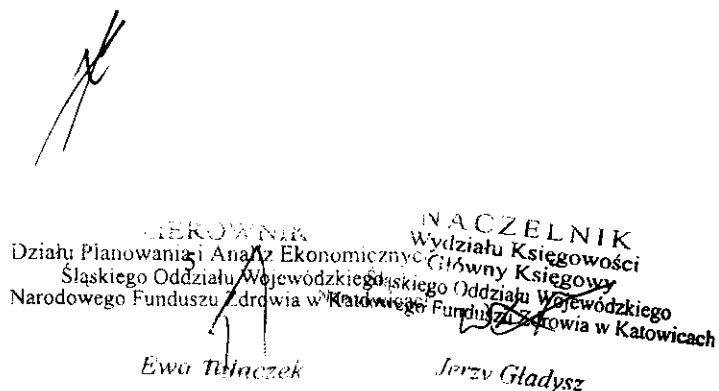 KIEROWNIK
Działu Planowania i Analiz Ekonomicznych
Śląskiego Oddziału Wojewódzkiego
Narodowego Funduszu Zdrowia w Katowicach
5
Ewa
NACZELNIK
Wydziału Księgowości
Główny Księgowy
Śląskiego Oddziału Wojewódzkiego
Narodowego Funduszu Zdrowia w Katowicach
Jerzy Gładysz